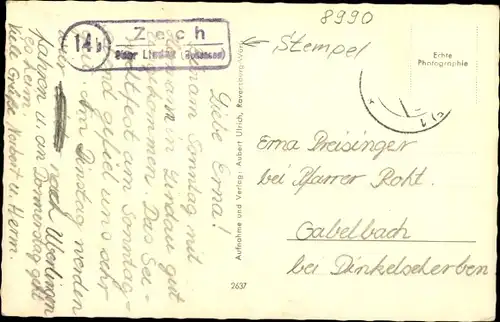 8990
14b
Zeech
über Lindau (Bodensee)
← Stempel
Echte
Photographie
Liebe Erna!
am Sonntag mit
in Lindau gut
kommen. Das See-
fest am Sonntag-
gefiel uns sehr
Am Dienstag werden
nach Überlingen
fahren u. am Donnerstag geht
es heim.
Viele Grüße, Norbert u. Herm.
Aufnahme und Verlag: Aubert Ulrich, Ravensburg-Wbg.
2637
Erna Preisinger
bei Pfarrer Roht.
Gabelbach
bei Dinkelscherben